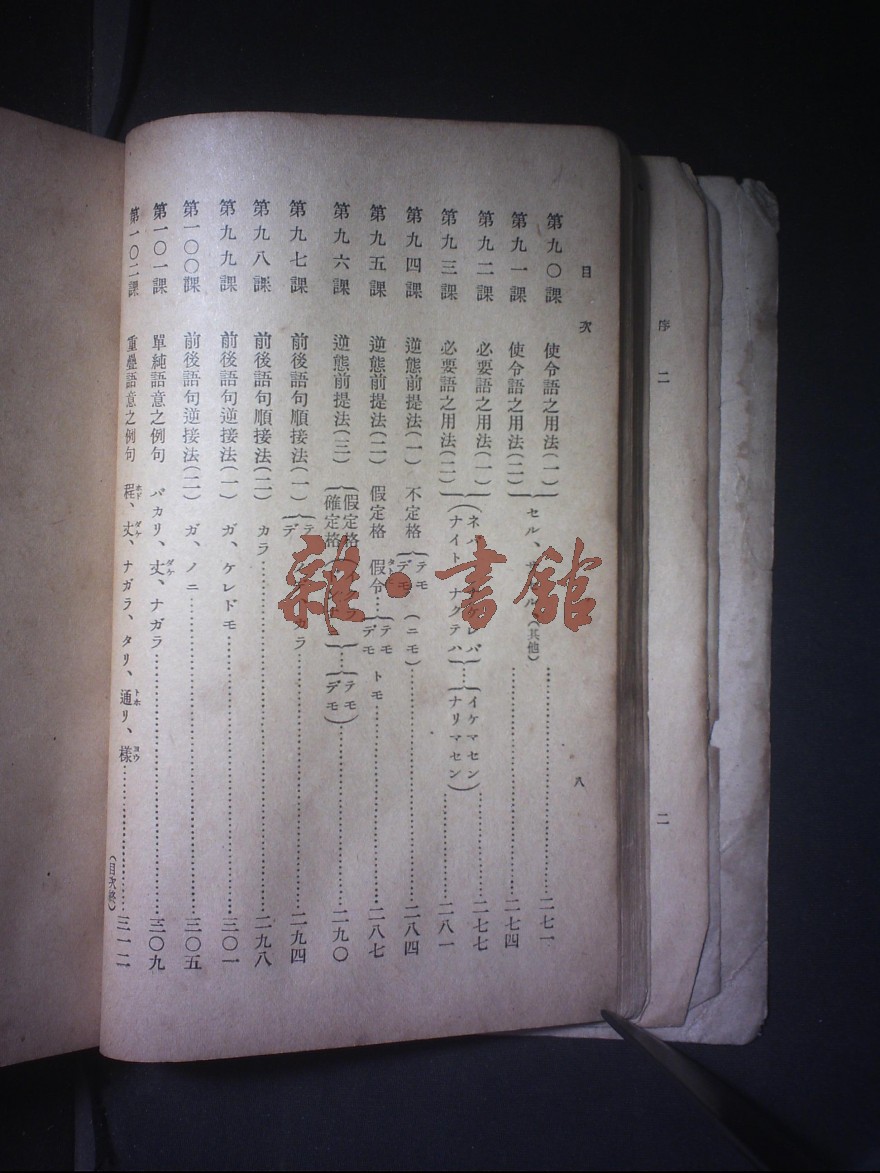 序二
二
目次
八
第九〇課 使令語之用法(一) 二七一
第九一課 使令語之用法(二) セル、 ル(其他) 二七四
第九二課 必要語之用法(一) (ネバ ケレバ)……(イケマセン) 二七七
第九三課 必要語之用法(二) (ナイト ナクテハ)……(ナリマセン) 二八一
第九四課 逆態前提法(一) 不定格 (テモ デモ (ニモ) 二八四
第九五課 逆態前提法(二) 假定格 假令…(テモ デモ トモ 二八七
第九六課 逆態前提法(三) (假定格 確定格 (テモ デモ) 二九〇
第九七課 前後語句順接法(一) カラ 二九四
第九八課 前後語句順接法(二) カラ 二九八
第九九課 前後語句逆接法(一) ガ、ケレドモ 三〇一
第一〇〇課 前後語句逆接法(二) ガ、ノニ 三〇五
第一〇一課 單純語意之例句 バカリ、丈ダケ、ナガラ 三〇九
第一〇二課 重疊語意之例句 程ホド、丈ダケ、ナガラ、タリ、通トホリ、樣ヨウ 三一二
(目次終)
雜·書館